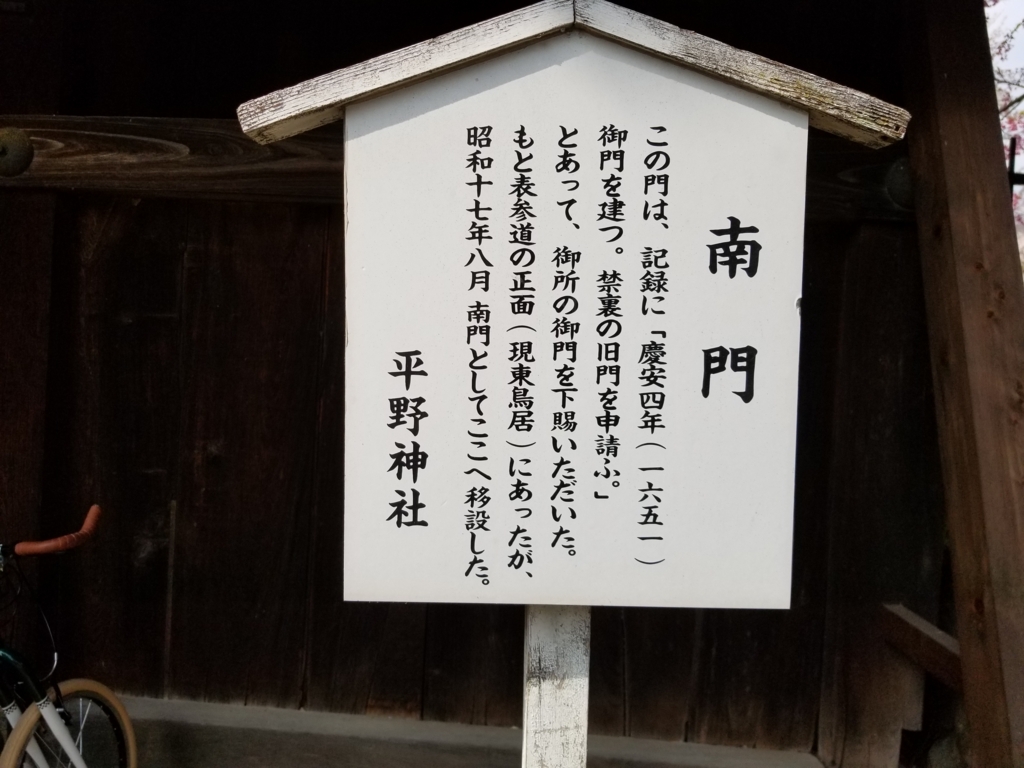 南門
この門は、記録に「慶安四年(一六五一)
御門を建つ。禁裏の旧門を申請ふ。」
とあって、御所の御門を下賜いただいた。
もと表参道の正面(現東鳥居)にあったが、
昭和十七年八月 南門としてここへ移設した。
平野神社